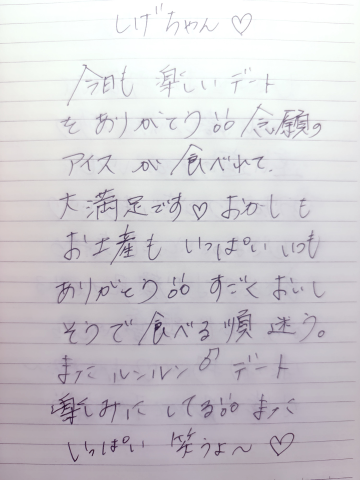 しげちゃん♡
今日も 楽しい デート
をありがとう 念願の
アイス が 食べれて、
大満足です♡ おかしも
お土産も いっぱい いつも
ありがとう すごく おいし
そうで 食べる 順 迷う。
また ルンルン♂ デート
楽しみに してる また
いっぱい 笑うょ〜♡